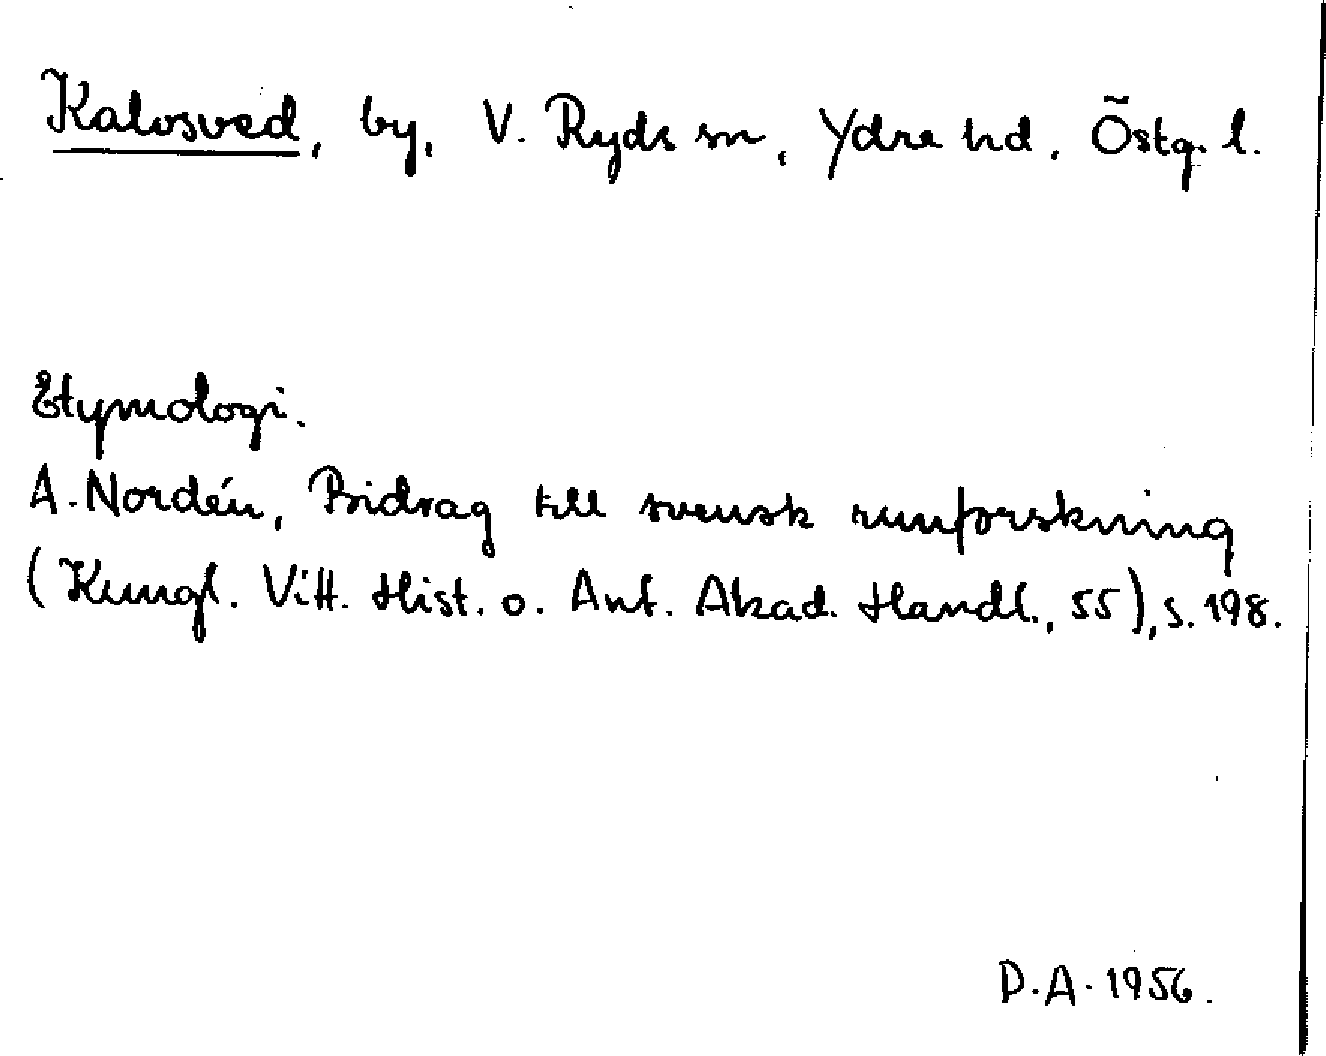 Kalvsved, by, V. Ryds sn, Ydre hd, Östg. l.
Etymologi.
A. Nordén, Bidrag till svensk runforskning
(Kungl. Vitt. Hist. o. Ant. Akad. Handl., 55), s. 198.
P.A. 1956.